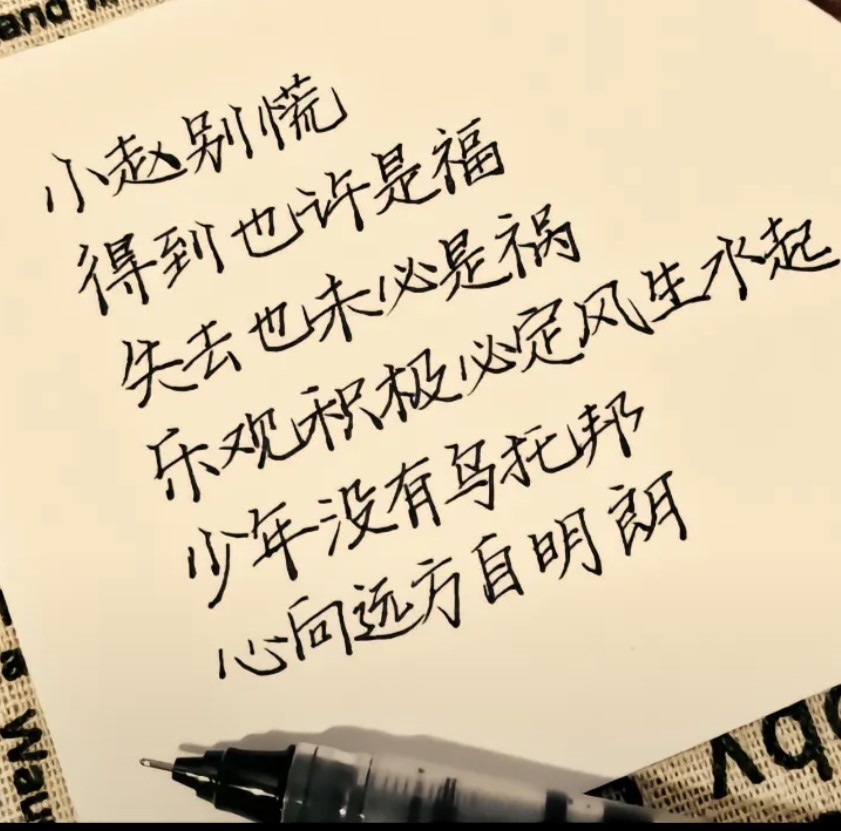 and
小赵别慌
得到也许是福
失去也未必是祸
乐观积极必定风生水起
少年没有乌托邦
心向远方自明朗
a